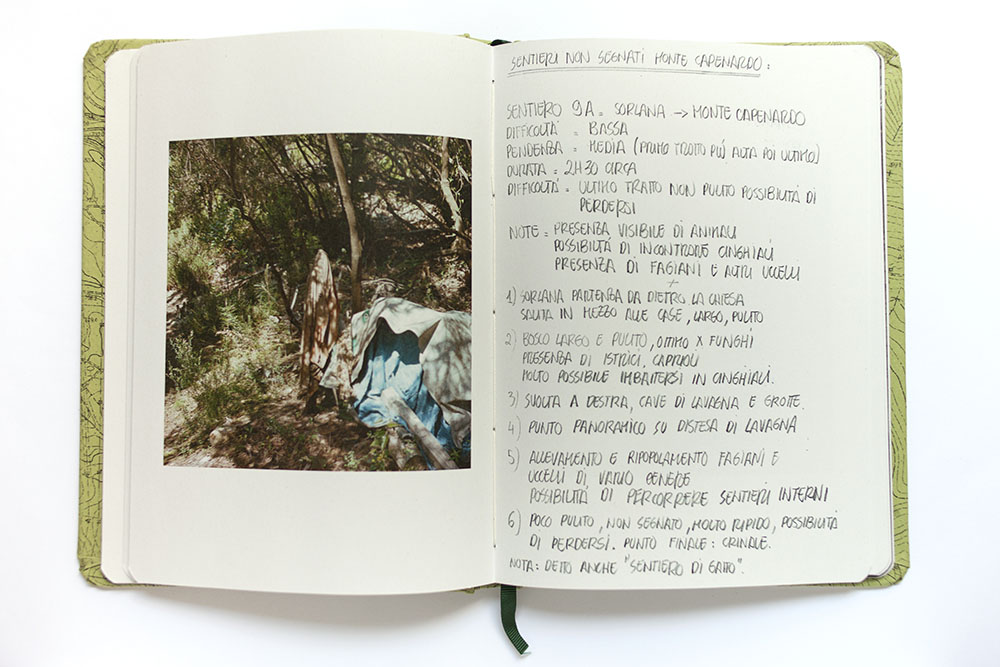 SENTIERI NON SEGNATI MONTE CAPENARDO:
SENTIERO 9A = SORLANA → MONTE CAPENARDO
DIFFICOLTÀ = BASSA
PENDENZA = MEDIA (PRIMO TRATTO PIÙ ALTA POI ULTIMO)
DURATA = 2H30 CIRCA
DIFFICOLTÀ = ULTIMO TRATTO NON PULITO POSSIBILITÀ DI
PERDERSI
NOTE = PRESENZA VISIBILE DI ANIMALI
POSSIBILITÀ DI INCONTRARE CINGHIALI
PRESENZA DI FAGIANI E ALTRI UCCELLI
+
1) SORLANA PARTENZA DA DIETRO LA CHIESA
SALITA IN MEZZO ALLE CASE, LARGO, PULITO
2) BOSCO LARGO E PULITO, OTTIMO X FUNGHI
PRESENZA DI ISTRICI, CAPRIOLI
MOLTO POSSIBILE IMBATTERSI IN CINGHIALI.
3) SVOLTA A DESTRA, CAVE DI LAVAGNA E GROTTE.
4) PUNTO PANORAMICO SU DISTESA DI LAVAGNA
5) ALLEVAMENTO E RIPOPOLAMENTO FAGIANI E
UCCELLI DI VARIO GENERE
POSSIBILITÀ DI PERCORRERE SENTIERI INTERNI
6) POCO PULITO, NON SEGNATO, MOLTO RIPIDO, POSSIBILITÀ
DI PERDERSI. PUNTO FINALE: CRINALE.
NOTA: DETTO ANCHE "SENTIERO DI GATTO".